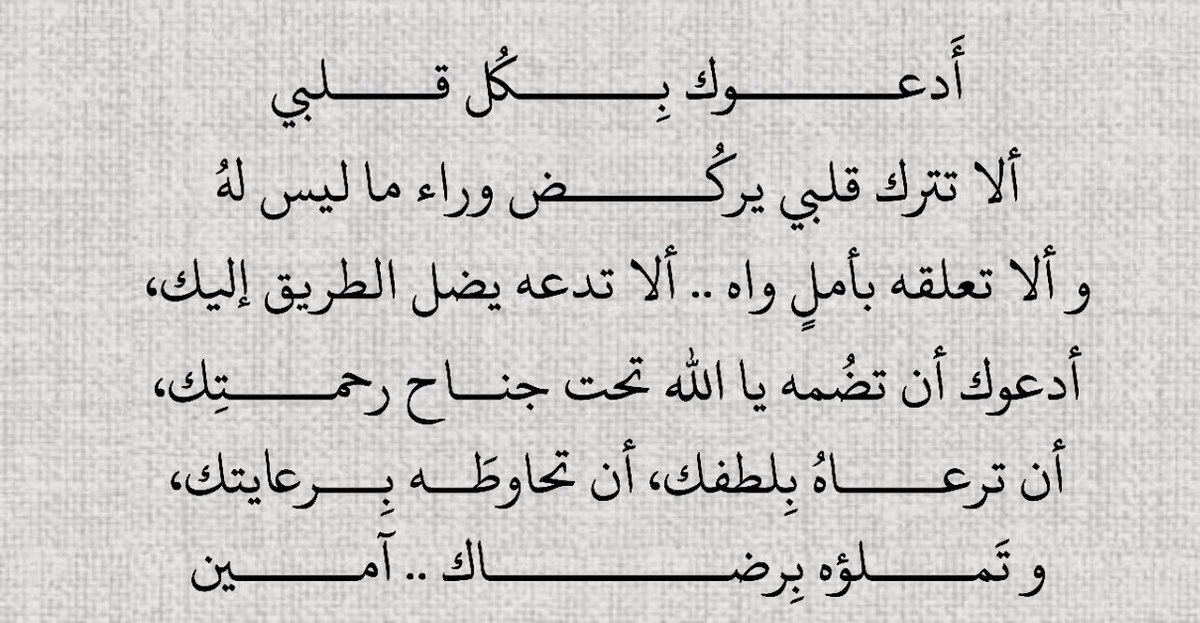 أَدعـــــــوك بِـــــــكُل قـــــلبي
ألا تترك قلبي يركُـــــــض وراء ما ليس لهُ
و ألا تعلقه بأملٍ واه .. ألا تدعه يضل الطريق إليك،
أدعوك أن تضُمه يا الله تحت جنـــاح رحمـــــتِك،
أن ترعـــــاهُ بِلطفك، أن تحاوطَـــه بِـــرعايتك،
و تَمـــــلؤه بِرضـــــــــاك .. آمـــــين